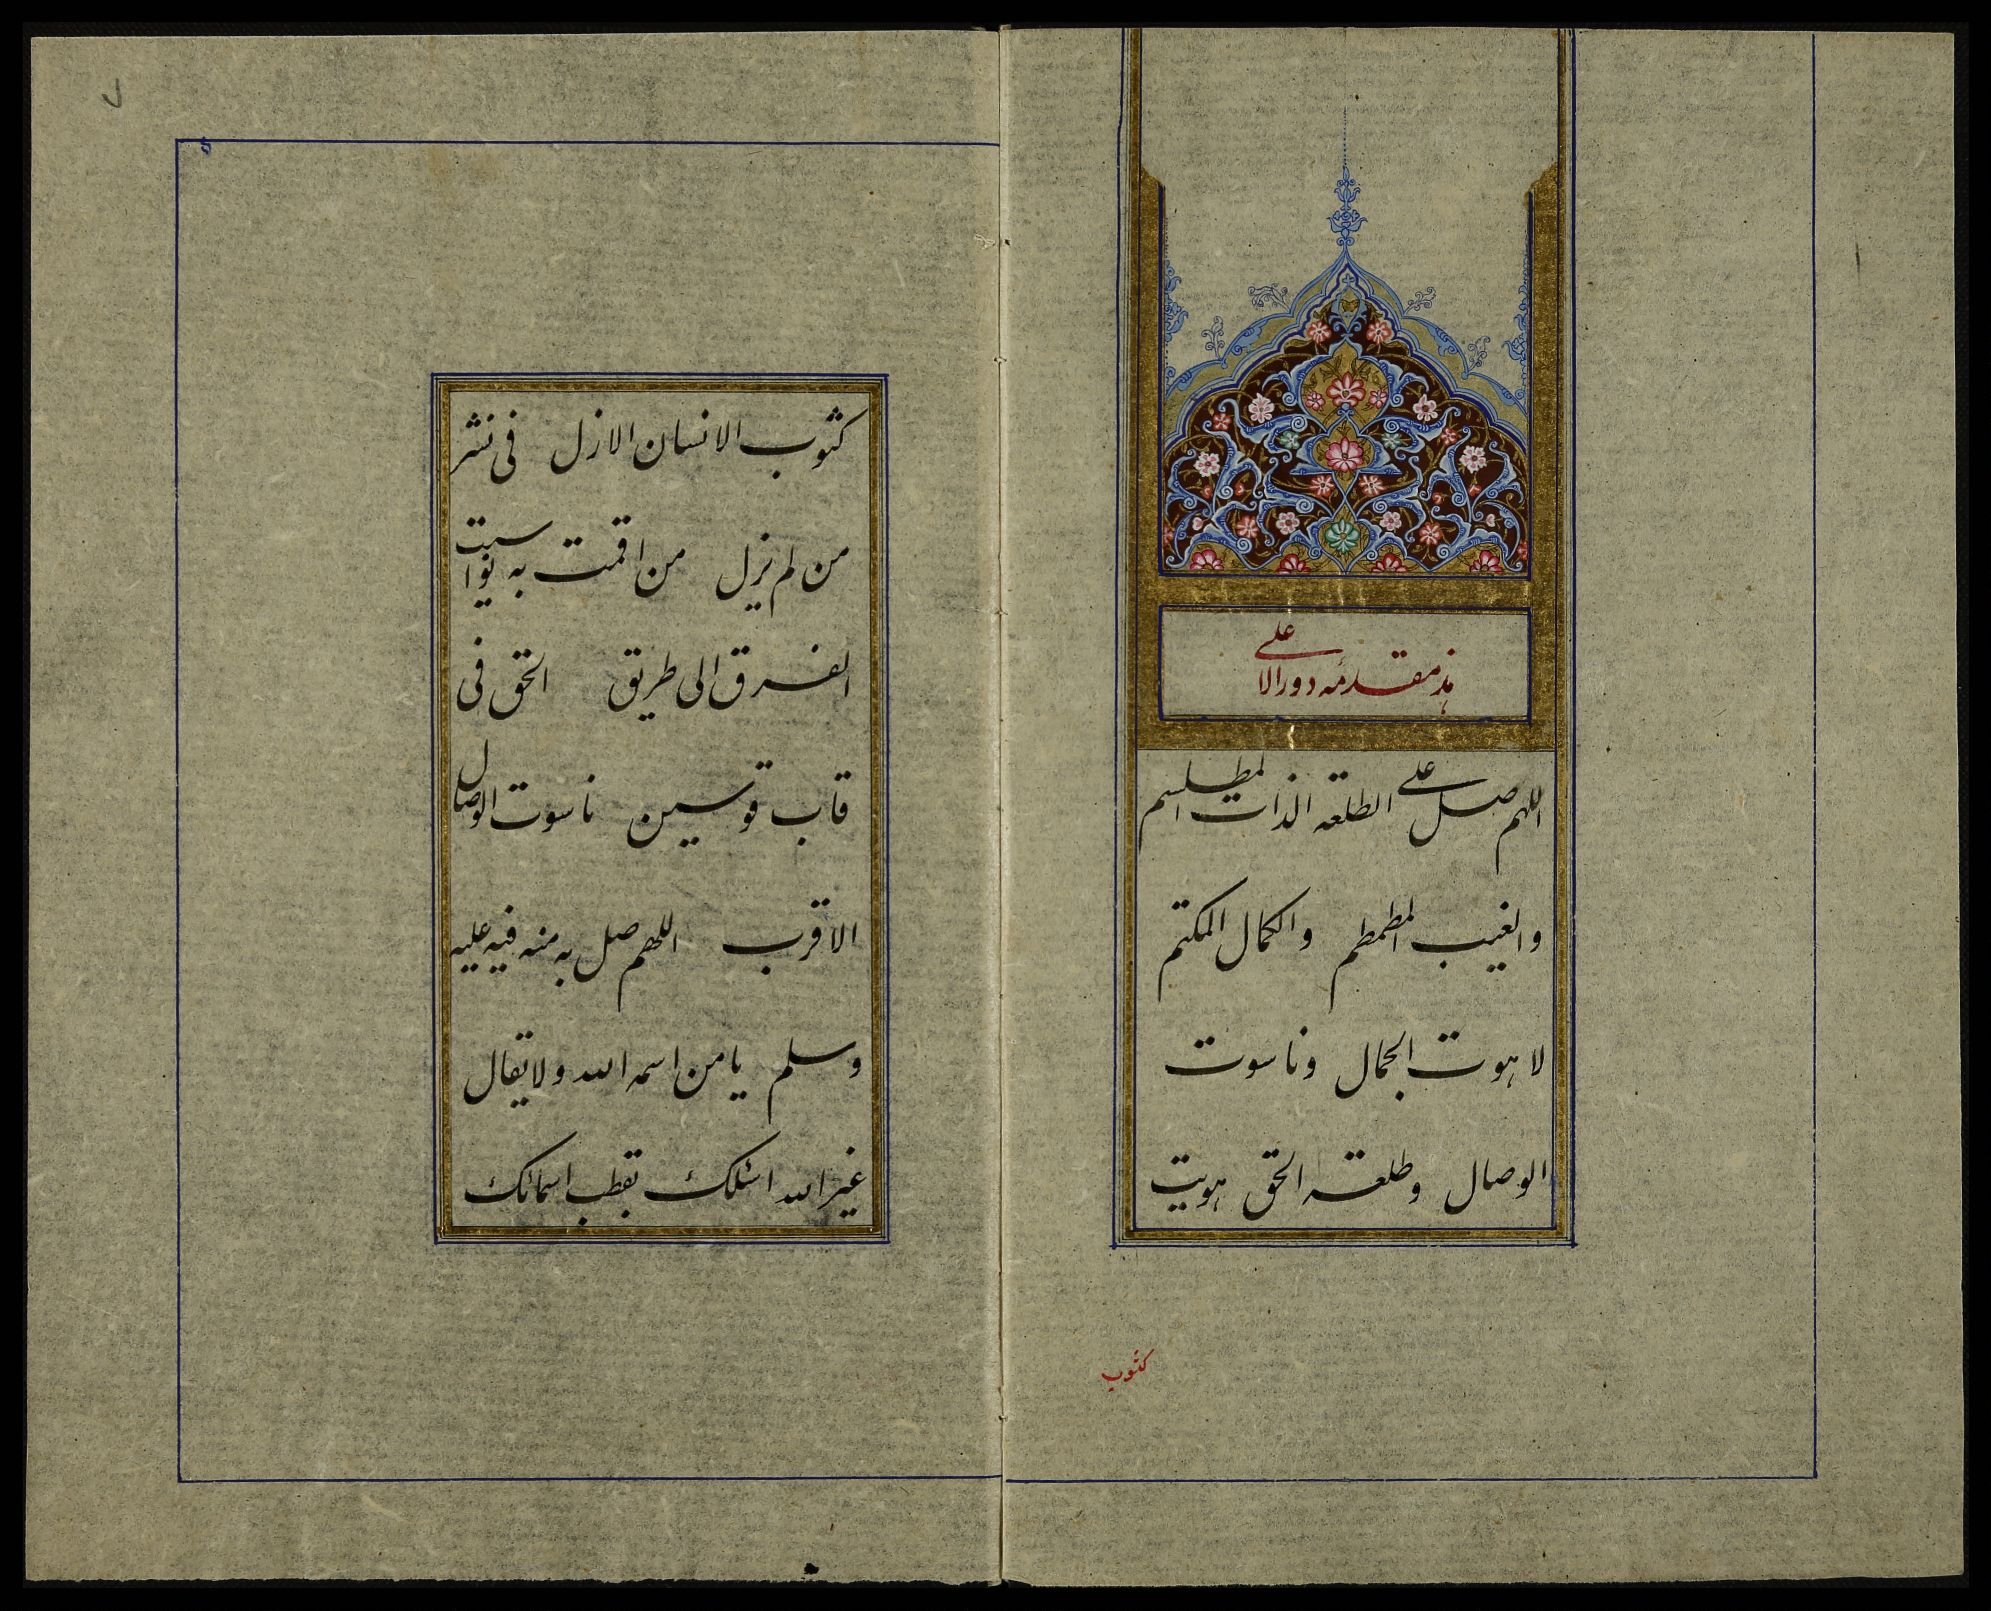 هذه مقدمۀ دور الاعلی
اللهم صل علی الطلعة الذات المطلسم
والغیب المطمطم والکمال المکتم
لاهوت الجمال وناسوت
الوصال وطلعة الحق هویت
کثوب
کثوب الانسان الازل فی نشر
من لم یزل من اقمت به نواسیت
الفرق الی طریق الحق فی
قاب قوسین ناسوت الوصال
الاقرب اللهم صل به منه فیه علیه
وسلم یا من اسمه الله ولا یقال
غیر الله اسئلک بقطب اسمائک